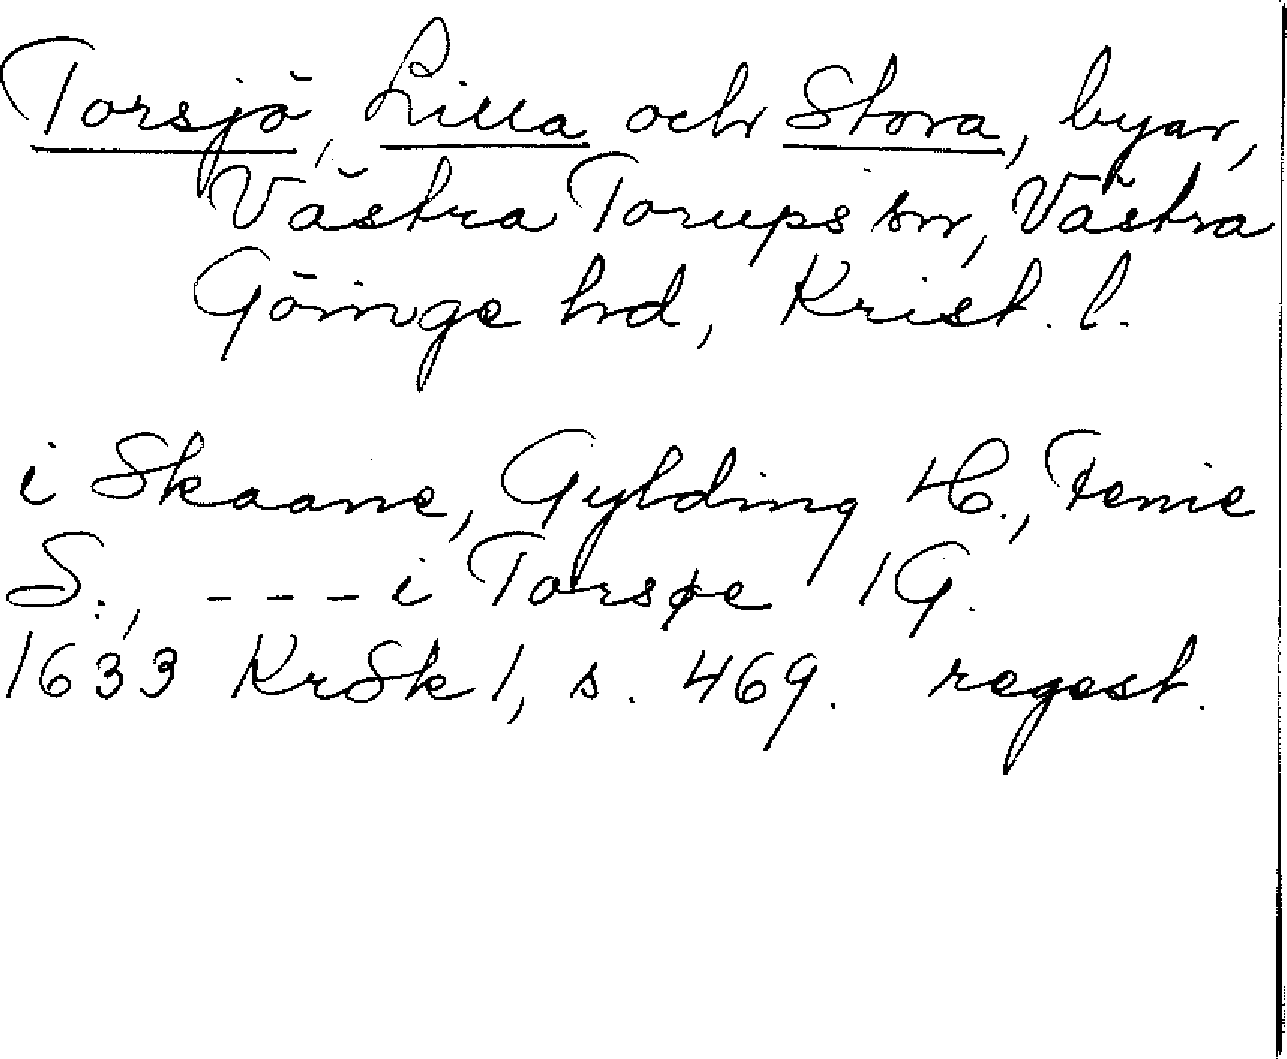 Torsjö, Lilla och Stora, byar,
Västra Torups sn, Västra
Göinge hd, Krist. l.
i Skaane, Gylding H., Fenie
S., --- i Torsøe 1 G.
1633 KrSk 1, s. 469. regest.